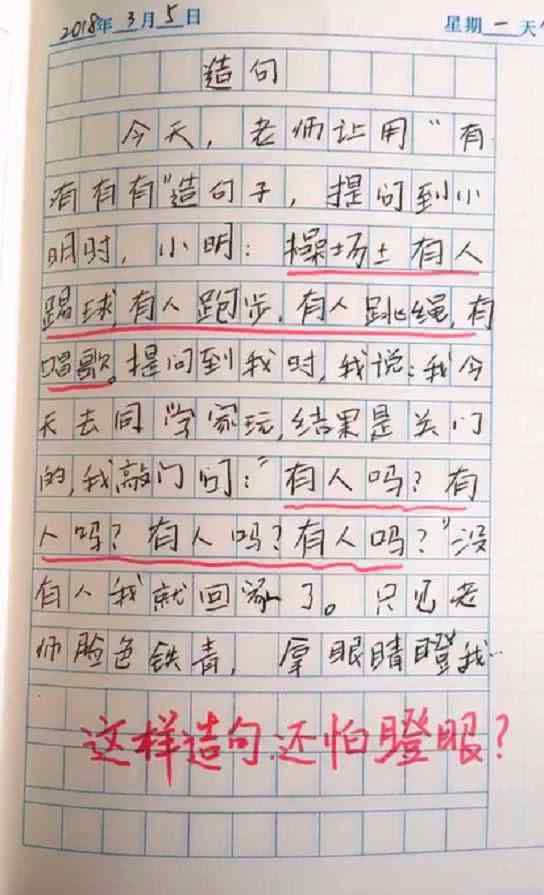 2018年3月5日 星期一 天
造句
今天，老师让用"有
有有有"造句子，提问到小
明时，小明：操场上有人
踢球，有人跑步，有人跳绳，有
唱歌。提问到我时，我说：我今
天去同学家玩，结果是关门
的，我敲门问："有人吗？有
人吗？有人吗？有人吗？"没
有人我就回家了。只见老
师脸色铁青，拿眼睛瞪我…
这样造句还怕瞪眼？